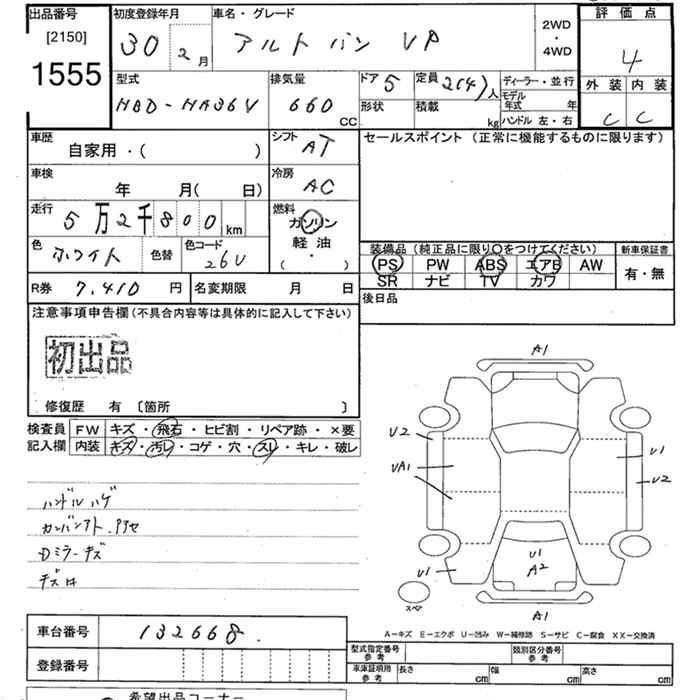 出品番号 初度登録年月 車名・グレード 2WD・4WD 評価点
[2150]
1555 30 2月 アルトバン VP 4
型式 排気量 ドア 5 定員 2(4)人 ディーラー・並行 外装 内装
HBD-HA36V 660cc 形状 積載 kg モデル年式 年 ハンドル 左・右 C C
車歴 自家用・( ) シフト AT セールスポイント (正常に機能するものに限ります)
車検 年 月( 日) 冷房 AC
走行 5万2千800km 燃料 ガソリン
軽油
・
( )
色 ホワイト 色替 色コード 26V
装備品(純正品に限り〇をつけてください) 新車保証書
PS PW ABS エアB AW 有・無
SR ナビ TV カワ
R券 7,410円 名変期限 月 日 後日品
注意事項申告欄(不具合内容等は具体的に記入して下さい)
初出品
修復歴 有 〔箇所 〕
検査員 FW キズ・飛石・ヒビ割・リペア跡・×要
記入欄 内装 キズ・汚レ・コゲ・穴・スレ・キレ・破レ
A1
U2
U1
UA1
U2
U1
A2
U1
スペア
A1
ハンドルハゲ
カンバンアト・アセ
Dミラーキズ
A-キズ E-エクボ U-凹み W-補修跡 S-サビ C-腐食 XX-交換済
車台番号 132668.
登録番号
型式指定番号 参考 類別区分番号 参考
車庫証明用 参考 長さ cm 幅 cm 高さ cm
希望出品コーナー